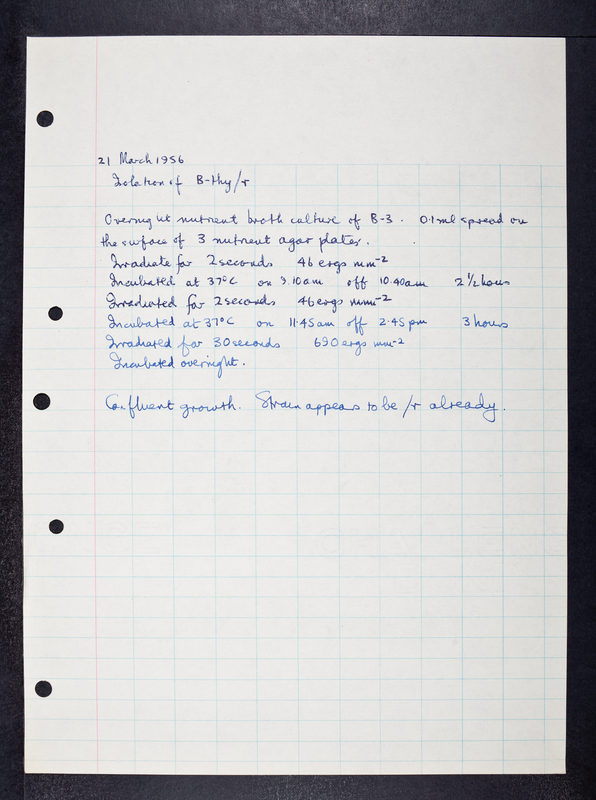 21 March 1956
Isolation of B-thy/r
Overnight nutrient broth culture of B-3. 0.1ml spread on
the surface of 3 nutrient agar plates.
Irradiate for 2 seconds 46 ergs mm-2
Incubated at 37°C on 3.10am off 10.40am 2 1/2 hours
Irradiated for 2 seconds 46 ergs mm-2
Incubated at 37°C on 11.45am off 2.45pm 3 hours
Irradiated for 30 seconds 690 ergs mm-2
Incubated overnight.
Confluent growth. Strain appears to be /r already.